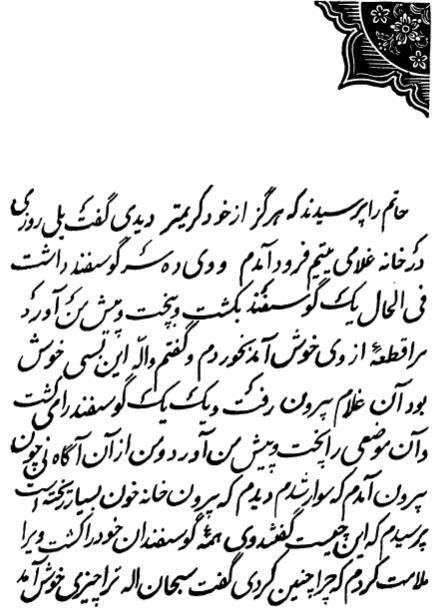 حاتم را پرسیدند که هرگز از خود کریمتر دیدی گفت بلی روزی
در خانه غلامی یتیم فرود آمدم و وی ده سر گوسفند داشت
فی الحال یک گوسفند بکشت و بپخت و پیش من آورد
مرا قطعهٔ از وی خوش آمد بخوردم و گفتم والله این بسی خوش
بود آن غلام بیرون رفت و یک یک گوسفند را می کشت
و آن موضعی را پخت و پیش من آورد و من از آن آگاه نی چون
بیرون آمدم که سوار شدم دیدم که بیرون خانه خون بسیار ریخته است
پرسیدم که این چیست گفتند وی همهٔ گوسفندان خود را کشت ویرا
ملامت کردم که چرا چنین کردی گفت سبحان الله ترا چیزی خوش آمد